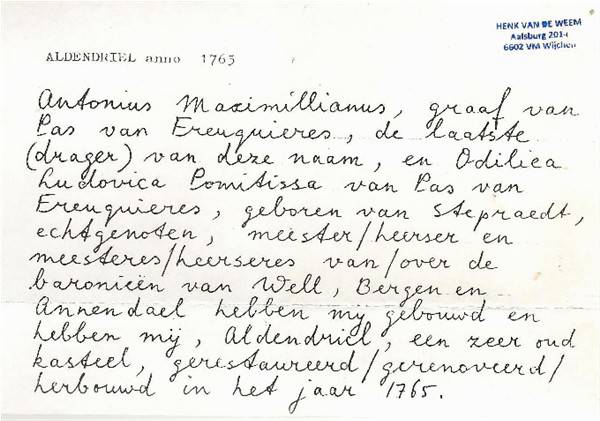 HENK VAN DE WEEM
Aalsburg 2014
6602 VM Wijchen
ALDENDRIEL anno 1765
Antonius Maximillianus, graaf van
Pas van Ereuquieres, de laatste
(drager) van deze naam, en Odilica
Ludovica Pomitissa van Pas van
Ereuquieres, geboren van Stepraedt,
echtgenoten, meester/heerser en
meesteres/heerseres van/over de
baronieën van Well, Bergen en
Annendael hebben mij gebouwd en
hebben mij, Aldendriel, een zeer oud
kasteel, gerestaureerd/gerenoveerd/
herbouwd in het jaar 1765.